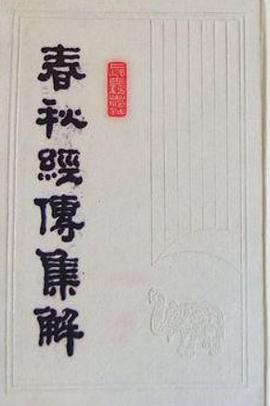 春秋經傳集解